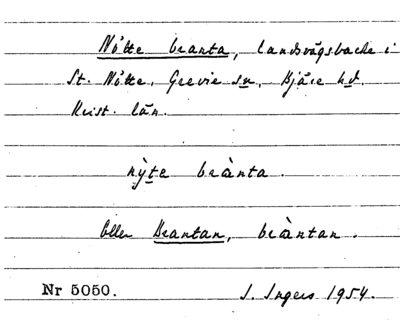 Nötte branta, landsvägsbacke i
St. Nötte, Grevie sn, Bjäre hd.
Krist. län.
nỳte beànta.
Eller Brantan, beàntan.
Nr 5050.
I. Ingers 1954.